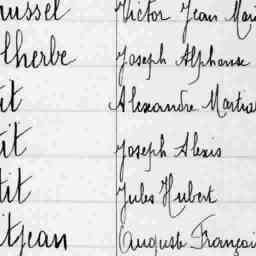 russel Victor Jean Mari
lherbe Joseph Alphonse
it Alexandre Martial
tit Joseph Alexis
tit Jules Hubert
itjean Auguste Françoi